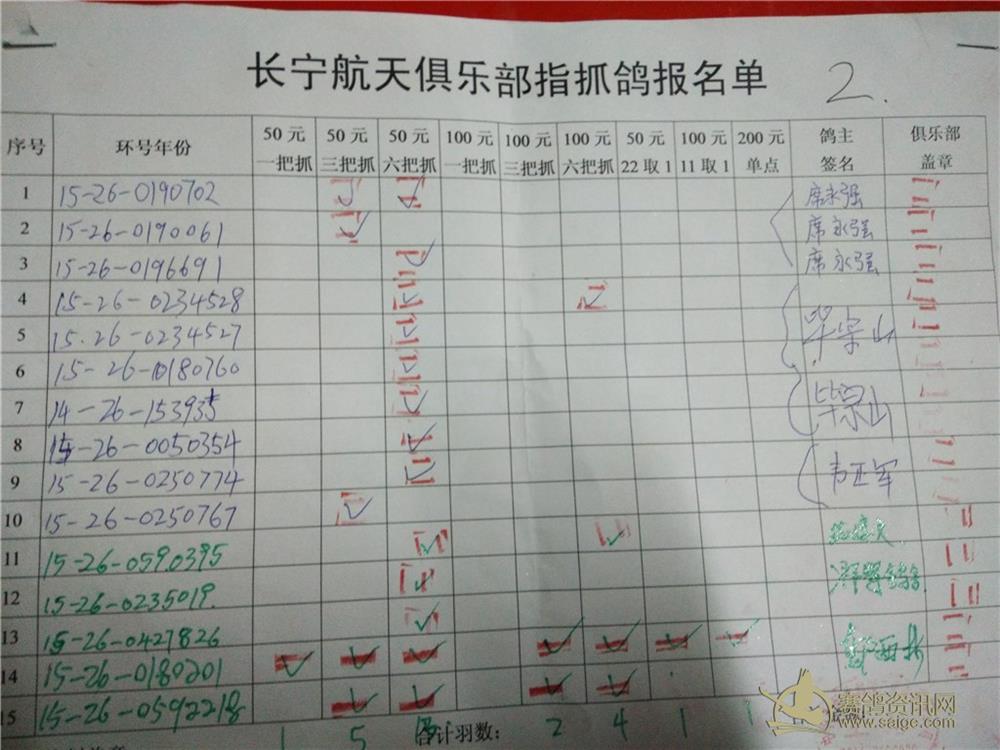 长宁航天俱乐部指抓鸽报名单 2.
序号 环号年份 50元一把抓 50元三把抓 50元六把抓 100元一把抓 100元三把抓 100元六把抓 50元22取1 100元11取1 200元单点 鸽主签名 俱乐部盖章
1 15-26-0190702 ✓ ✓ 席永强
2 15-26-0190061 ✓ 席永强
3 15-26-0196691 ✓ 席永强
4 15-26-0234528 ✓ ✓
5 15.26-0234527 ✓ 毕宗山
6 15-26-0180760 ✓
7 14-26-153935 ✓ 毕宗山
8 15-26-0050354 ✓
9 15-26-0250774 ✓ 韦正军
10 15-26-0250767 ✓
11 15-26-0590395 ✓ ✓
12 15-26-0235019. ✓
13 15-26-0427826 ✓
14 15-26-0180201 ✓ ✓ ✓ ✓ ✓ ✓ ✓
15 15-26-0592218 ✓ ✓ ✓ ✓
合计羽数: 1 5 2 4 1 1
赛鸽资讯网
www.saige.com